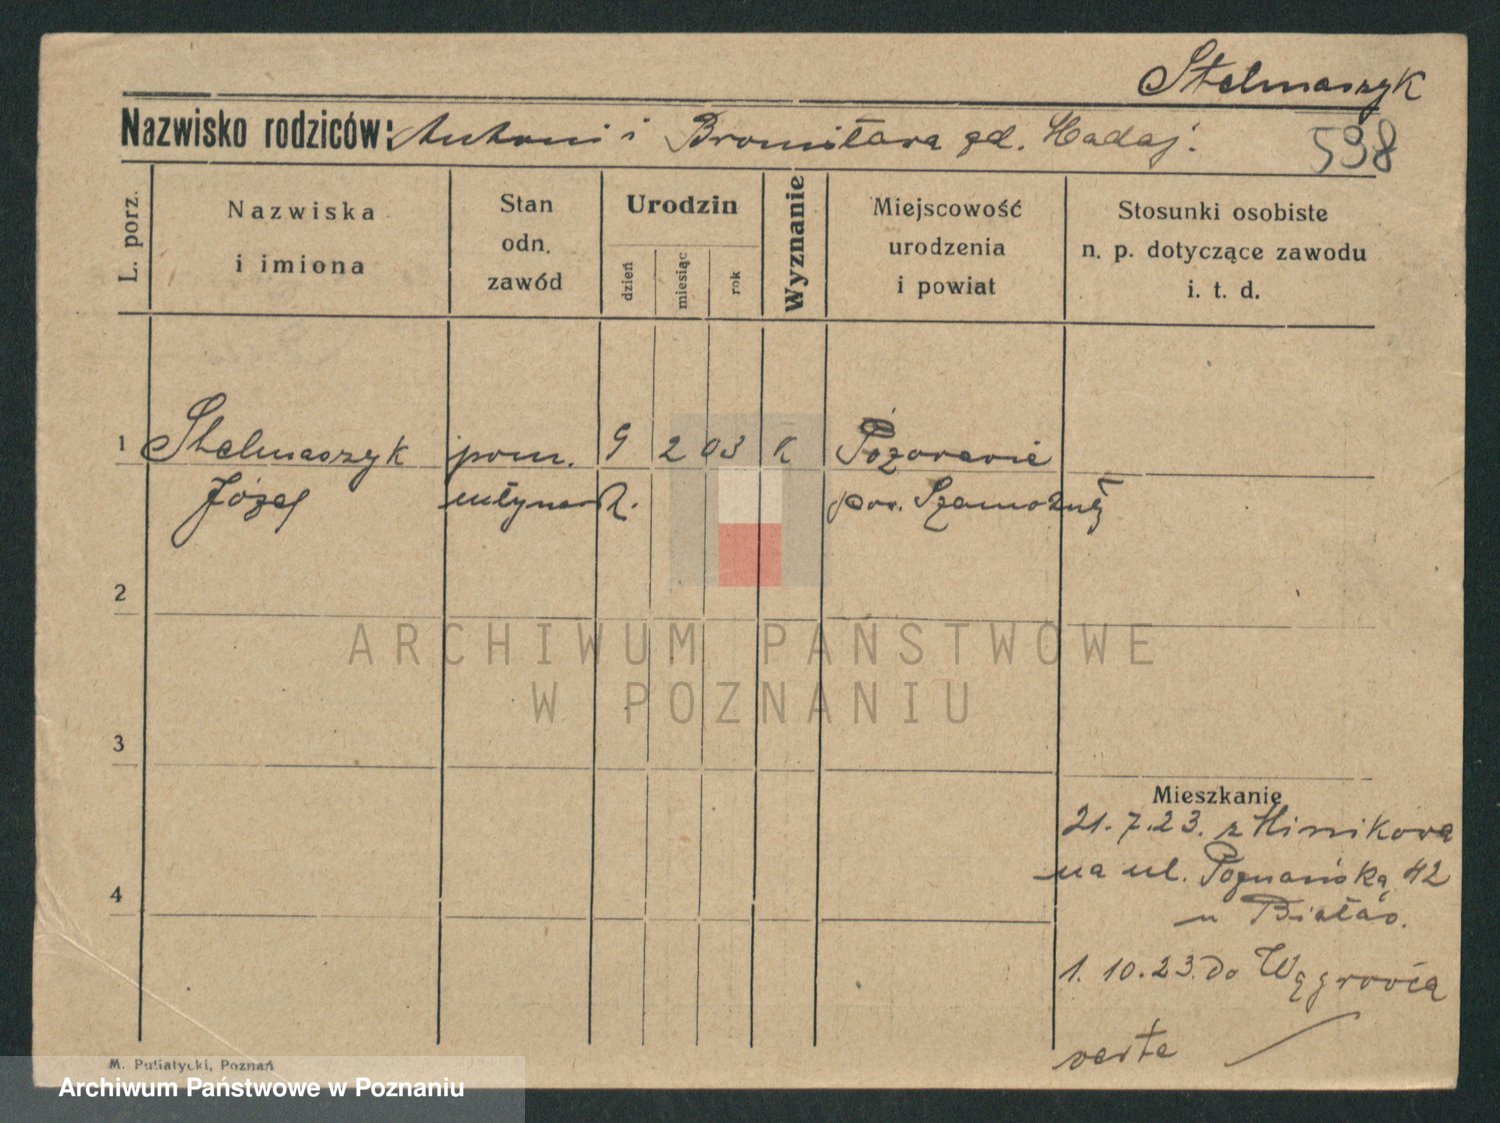 Stelmaszyk
Nazwisko rodziców: Antoni i Bronisława gd. Hadaj.
598
L. porz.
Nazwiska i imiona
Stan odn. zawód
Urodzin
dzień
miesiąc
rok
Wyznanie
Miejscowość urodzenia i powiat
Stosunki osobiste n. p. dotyczące zawodu i. t. d.
1 Stelmaszyk pom. 9 2 03 K
Józef młynar. pow.
2
ARCHIWUM PAŃSTWOWE
W POZNANIU
3
Mieszkanie
21. 7. 23. z
na ul. Poznańską 42
u
4
1. 10. 23. do
verte
M. Putiatycki, Poznań
Archiwum Państwowe w Poznaniu